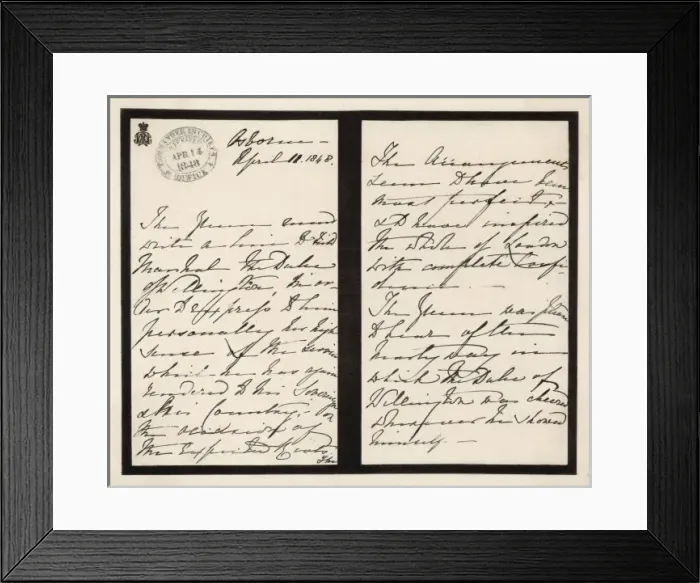 COMMANDER IN CHIEF'S
RECEIVED
APR 14
1848
OFFICE
Osborne –
April 11. 1848.
The Queen must
write a line to Field
Marshal the Duke
of Wellington, in or-
der to express to him
personally her high
sense of the service
which he has again
rendered to his Sovereign
& this Country, on
the occasion of
the expected Riots.
The
The Arrangements
seem to have been
most perfect &
to have inspired
the whole of London
with complete confi-
dence. –
The Queen was pleased
to hear of the
hearty way in
which the Duke of
Wellington was cheered
whenever he showed
himself –